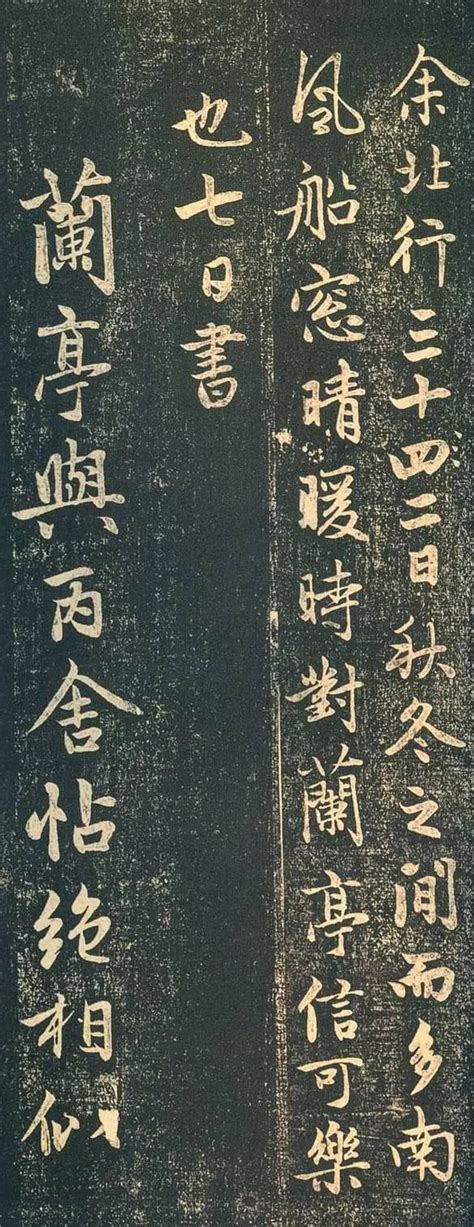 余北行三十四二日秋冬之间而多南
風船窓晴暖時對蘭亭信可樂
也七日書
蘭亭與丙舍帖絶相似